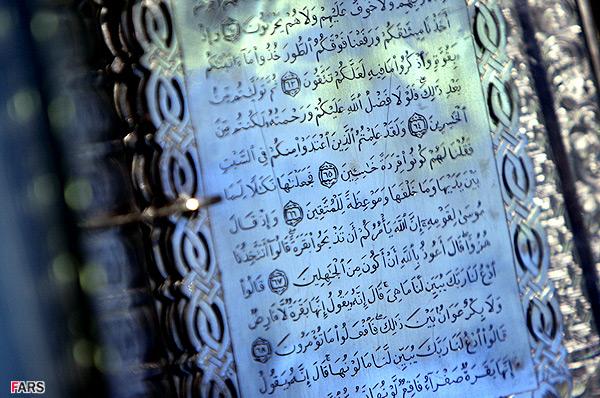 ربهم ولا خوف عليهم ولا هم يحزنون ٦٢ وإذ
أخذنا ميثقكم ورفعنا فوقكم الطور خذوا ما ءاتينكم
بقوة واذكروا ما فيه لعلكم تتقون ٦٣ ثم توليتم من
بعد ذلك فلولا فضل الله عليكم ورحمته لكنتم من
الخسرين ٦٤ ولقد علمتم الذين اعتدوا منكم في السبت
فقلنا لهم كونوا قردة خسئين ٦٥ فجعلنها نكلا لما
بين يديها وما خلفها وموعظة للمتقين ٦٦ وإذ قال
موسى لقومه إن الله يأمركم أن تذبحوا بقرة قالوا أتتخذنا
هزوا قال أعوذ بالله أن أكون من الجهلين ٦٧ قالوا
ادع لنا ربك يبين لنا ما هي قال إنه يقول إنها بقرة لا فارض
ولا بكر عوان بين ذلك فافعلوا ما تؤمرون ٦٨
قالوا ادع لنا ربك يبين لنا ما لونها قال إنه يقول
إنها بقرة صفراء فاقع لونها
FARS